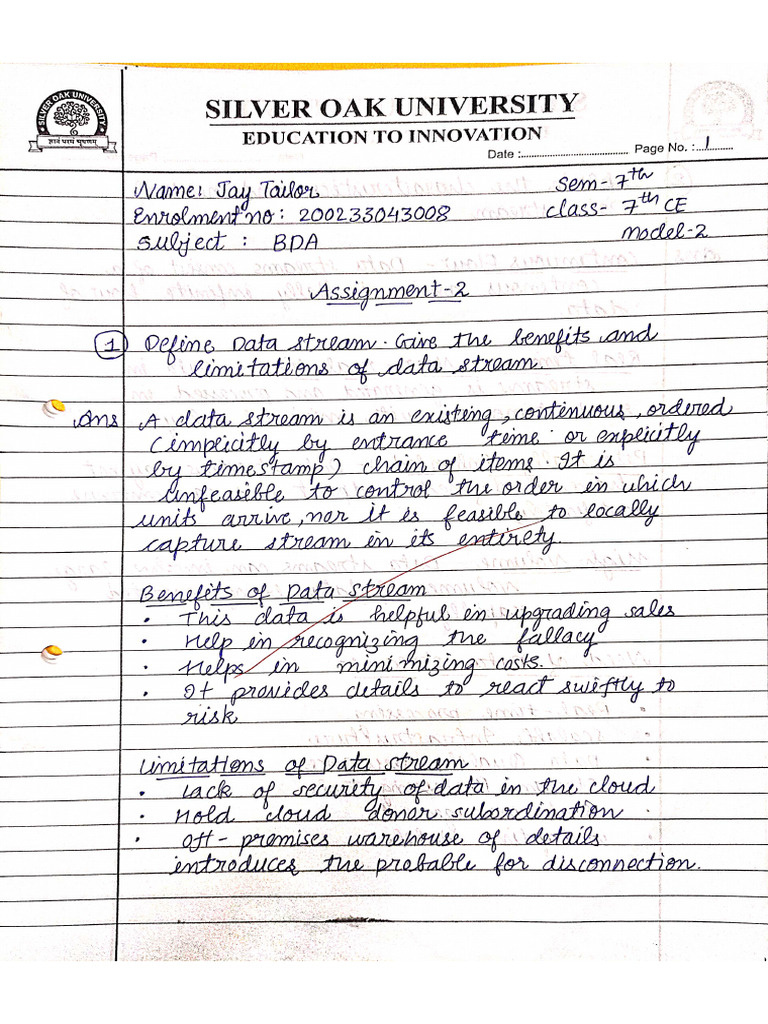 SILVER OAK UNIVERSITY
SILVER OAK UNIVERSITY
EDUCATION TO INNOVATION
ज्ञानं परमं भूषणम्
Date : Page No. : 1
Name: Jay Tailor Sem- 7th
Enrolment no: 200233043008 class- 7th CE
Subject : BDA Model-2
Assignment-2
1 Define Data stream. Give the benefits and
limitations of data stream.
Ans A data stream is an existing, continuous, ordered
(implicitly by entrance time or explicitly
by timestamp) chain of items. It is
unfeasible to control the order in which
units arrive, nor it is feasible to locally
capture stream in its entirety.
Benefits of Data stream
• This data is helpful in upgrading sales
• Help in recognizing the fallacy
• Helps in minimizing costs.
• It provides details to react swiftly to
risk
Limitations of Data stream
• Lack of security of data in the cloud
• Hold cloud donor subordination
• Off-premises warehouse of details
introduces the probable for disconnection.